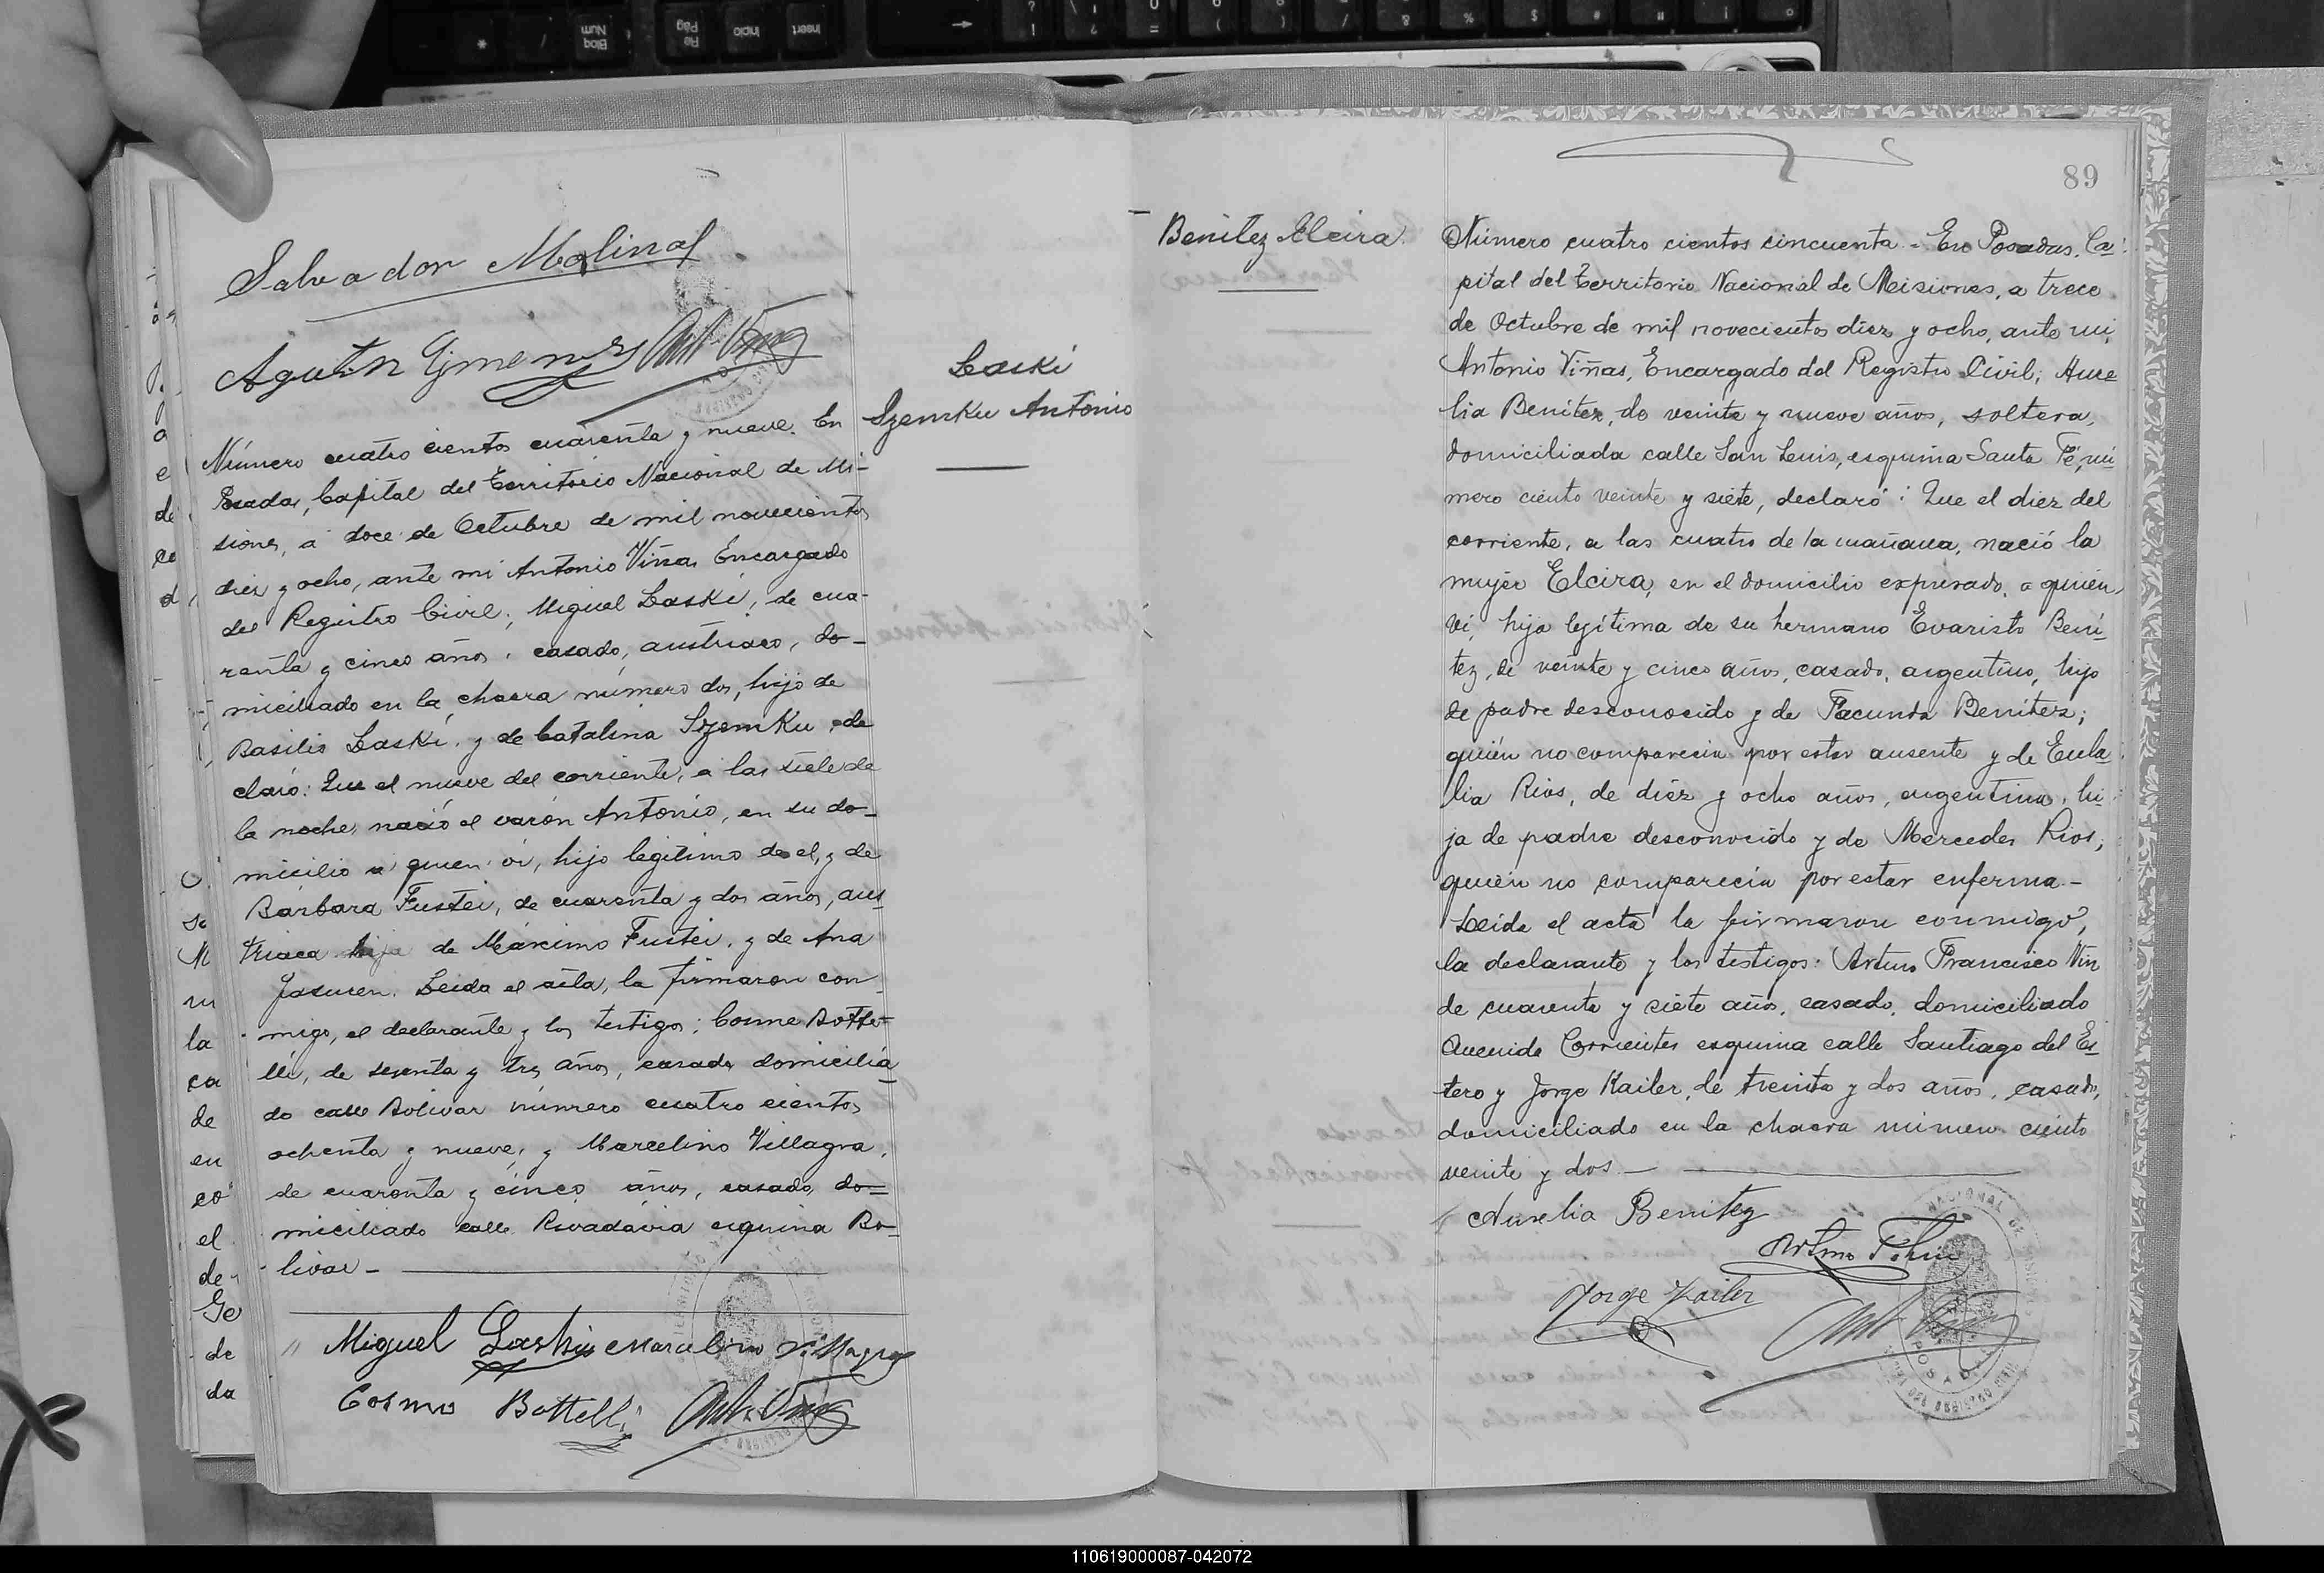 Salvador Molinas
Agustin Gimenes
Laski
Szemku Antonio
Número cuatro cientos cuarenta y nueve. En
Posadas, Capital del Territorio Nacional de Mi-
siones, a doce de Octubre de mil novecientos
diez y ocho, ante mi Antonio Viñas Encargado
del Registro Civil; Miguel Laski, de cua-
renta y cinco años, casado, austriaco, do-
miciliado en la chacra número dos, hijo de
Basilio Laski, y de Catalina Szemku, de
claró: Que el nueve del corriente, a las siete de
la noche, nació el varón Antonio, en su do-
micilio a quien ví, hijo legítimo de el, y de
Bárbara Fustei, de cuarenta y dos años, aus
triaca hija de Máximo Fustei, y de Ana
Leida el acta, la firmaron con
migo, el declarante y los testigos; Cosme Botte-
lli, de sesenta y tres años, casado domicilia
do calle Bolivar número cuatro cientos
ochenta y nueve; y Marcelino Villagra,
de cuarenta y cinco años, casado, do=
miciliado calle Rivadavia esquina Bo-
livar -
Miguel Laski Marcelino Villagra
Cosmo Bottelli
89
Benitez Elcira
Número cuatro cientos cincuenta - En Posadas, Ca
pital del Territorio Nacional de Misiones, a trece
de Octubre de mil novecientos diez y ocho, ante mi,
Antonio Viñas, Encargado del Registro Civil; Aure
lia Benitez, de veinte y nueve años, soltera,
domiciliada calle San Luis, esquina Santa Fé, nú
mero ciento veinte y siete, declaró: Que el diez del
corriente, a las cuatro de la mañana, nació la
mujer Elcira, en el domicilio expresado, a quien
ví, hija legítima de su hermano Evaristo Bení
tez, de veinte y cinco años, casado, argentino, hijo
de padre desconocido y de Facunda Benitez;
quién no comparecia por estar ausente y de Eula
lia Rios, de diez y ocho años, argentina, hi
ja de padre desconocido y de Mercedes Rios,
quién no comparecia por estar enferma.-
Leida el acta la firmaron conmigo,
la declarante y los testigos: Arturo Francisco
de cuarenta y siete años, casado, domiciliado
Avenida Corrientes esquina calle Santiago del Es
tero y Jorge Kailer, de treinta y dos años, casado,
domiciliado en la chacra número ciento
veinte y dos.-
Aurelia Benitez
Jorge Kailer
110619000087-042072